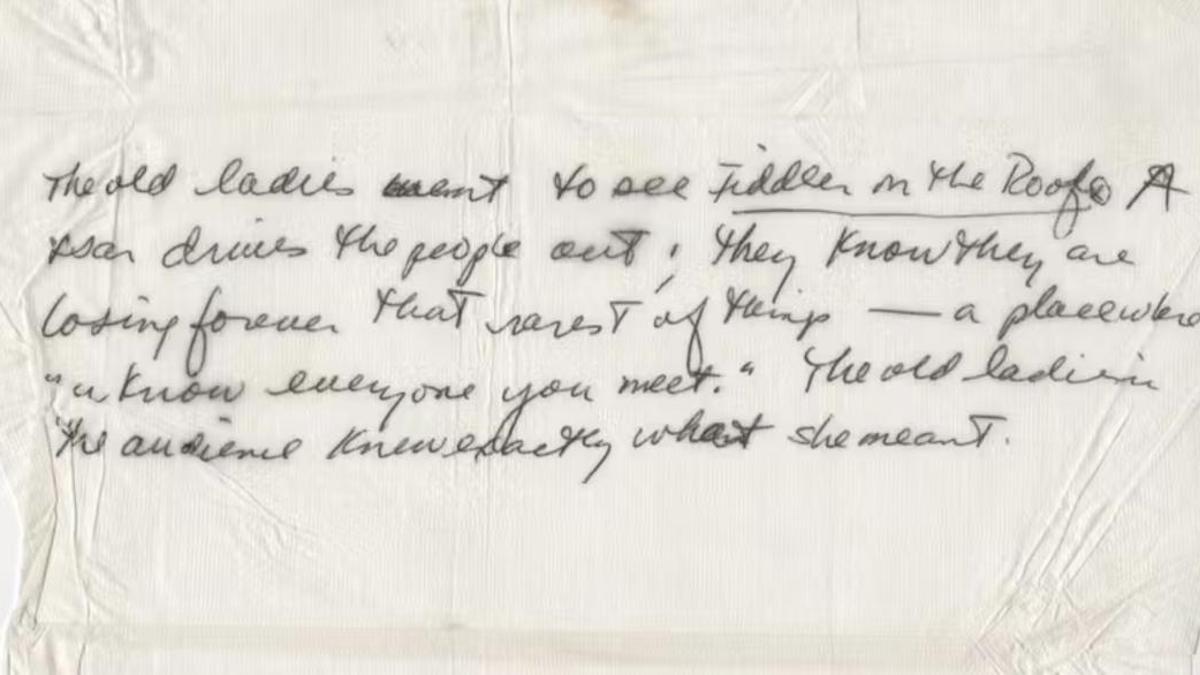 The old ladies went to see Fiddler on the Roof. A
tsar drives the people out; they know they are
losing forever that rarest of things — a place where
"u know everyone you meet." The old ladies in
the audience knew exactly what she meant.